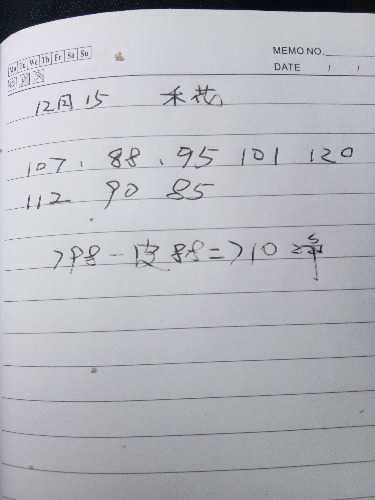 Mo Tu We Th Fr Sa Su
MEMO NO.
DATE / /
12月15 禾花
107、88、95 101 120
112 90 85
798-皮88=710 净